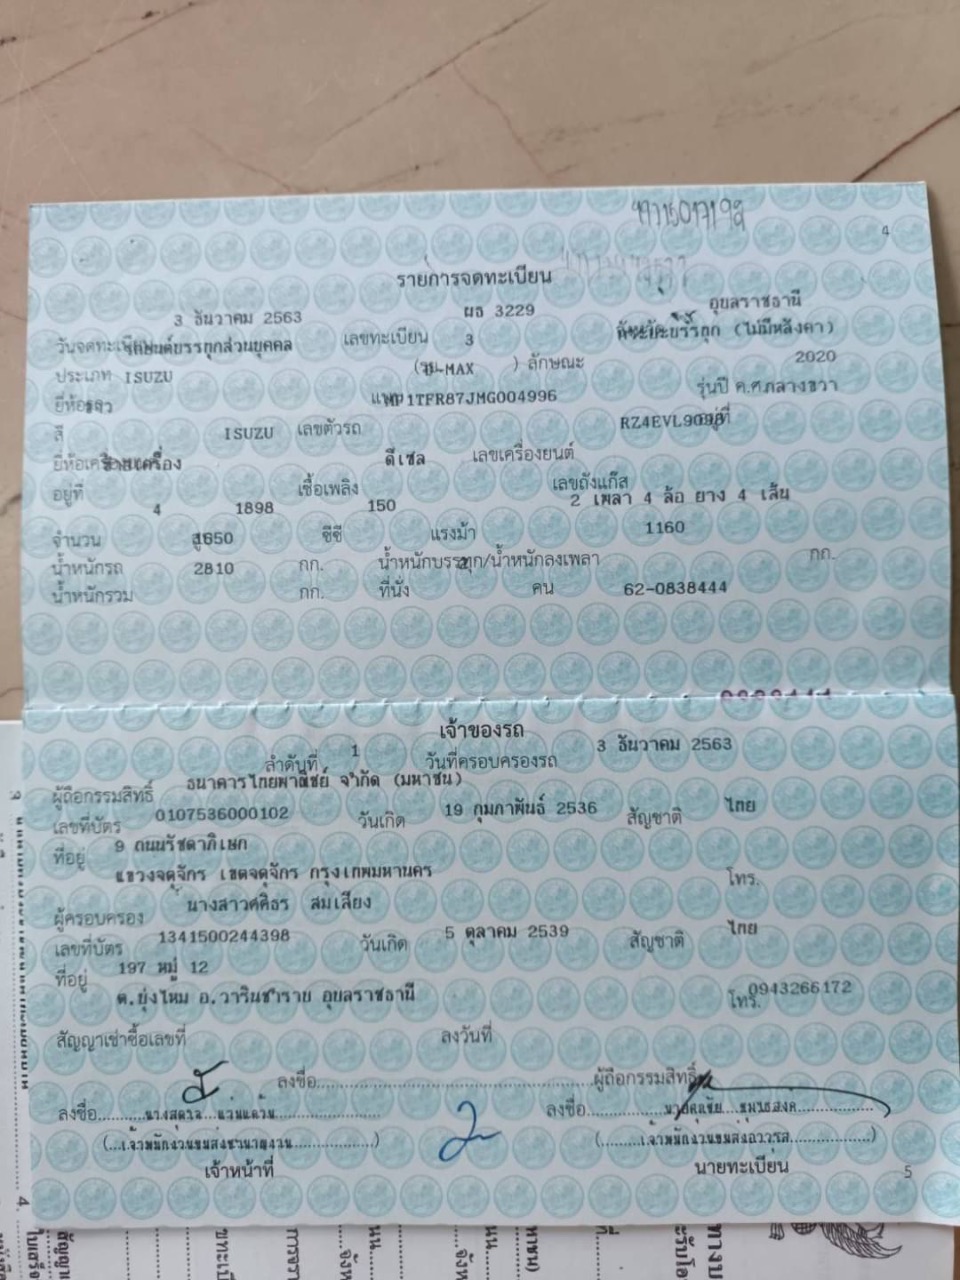 4
รายการจดทะเบียน
วันจดทะเบียน 3 ธันวาคม 2563 เลขทะเบียน ผธ 3229 อุบลราชธานี
ประเภท รถยนต์บรรทุกส่วนบุคคล 3 ลักษณะ (ไม่มีหลังคา)
ยี่ห้อรถ ISUZU -MAX ) รุ่นปี ค.ศ. 2020
สี เลขตัวรถ MP1TFR87JMG004996 อยู่ที่ กลางขวา
ยี่ห้อเครื่อง ISUZU เลขเครื่องยนต์ RZ4EVL9098
อยู่ที่ ซ้ายเครื่อง เชื้อเพลิง ดีเซล เลขถังแก๊ส
จำนวน 4 สูบ 1898 ซีซี 150 แรงม้า 2 เพลา 4 ล้อ ยาง 4 เส้น
น้ำหนักรถ 1650 กก. น้ำหนักบรรทุก/น้ำหนักลงเพลา 1160 กก.
น้ำหนักรวม 2810 กก. ที่นั่ง 2 คน 62-0838444
เจ้าของรถ
ลำดับที่ 1 วันที่ครอบครองรถ 3 ธันวาคม 2563
ผู้ถือกรรมสิทธิ์ ธนาคารไทยพาณิชย์ จำกัด (มหาชน)
เลขที่บัตร 0107536000102 วันเกิด 19 กุมภาพันธ์ 2536 สัญชาติ ไทย
ที่อยู่ 9 ถนนรัชดาภิเษก
แขวงจตุจักร เขตจตุจักร กรุงเทพมหานคร โทร.
ผู้ครอบครอง นางสาวศศิธร สมเสียง
เลขที่บัตร 1341500244398 วันเกิด 5 ตุลาคม 2539 สัญชาติ ไทย
ที่อยู่ 197 หมู่ 12
ต.บุ่งไหม อ.วารินชำราบ อุบลราชธานี โทร. 0943266172
สัญญาเช่าซื้อเลขที่ ลงวันที่
ลงชื่อ ผู้ถือกรรมสิทธิ์
ลงชื่อ ลงชื่อ
(เจ้าพนักงานขนส่งชำนาญงาน) (เจ้าพนักงานขนส่งอาวุโส)
เจ้าหน้าที่ นายทะเบียน
5